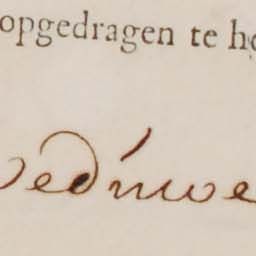 opgedragen te he
weduwe